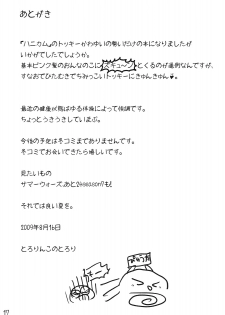 あとがき
『ハニカム』のトッキーがかわゆいの勢いだけの本になりましたが
いかがでしたでしょうか。
基本ピンク髪のおんなのこにズキューンとくるのが通例なんですが、
すなおでひたむきでちみっこいトッキーにきゅんきゅん♥。
最近の健康が飛ばゆる体操によって強調です。
ちょっとうきうきしているぽ。
今後の予定は冬コミまでありませんです。
冬コミでお会いできたら嬉しいです。
見たいもの
サマーウォーズ、あと2season7も!
それでは良い夏を。
2009年8月16日
とろりんこのとろり
17